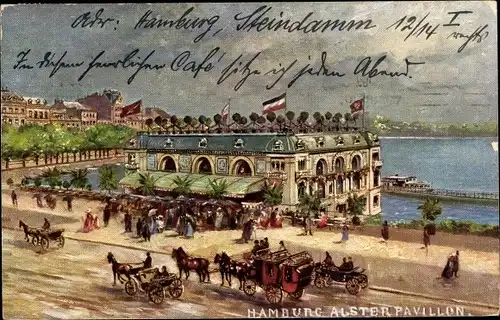 Adr: Hamburg, Steindamm 12/14 I
rechts
In diesem herrlichen Cafe sitze ich jeden Abend.
HAMBURG ALSTERPAVILLON.